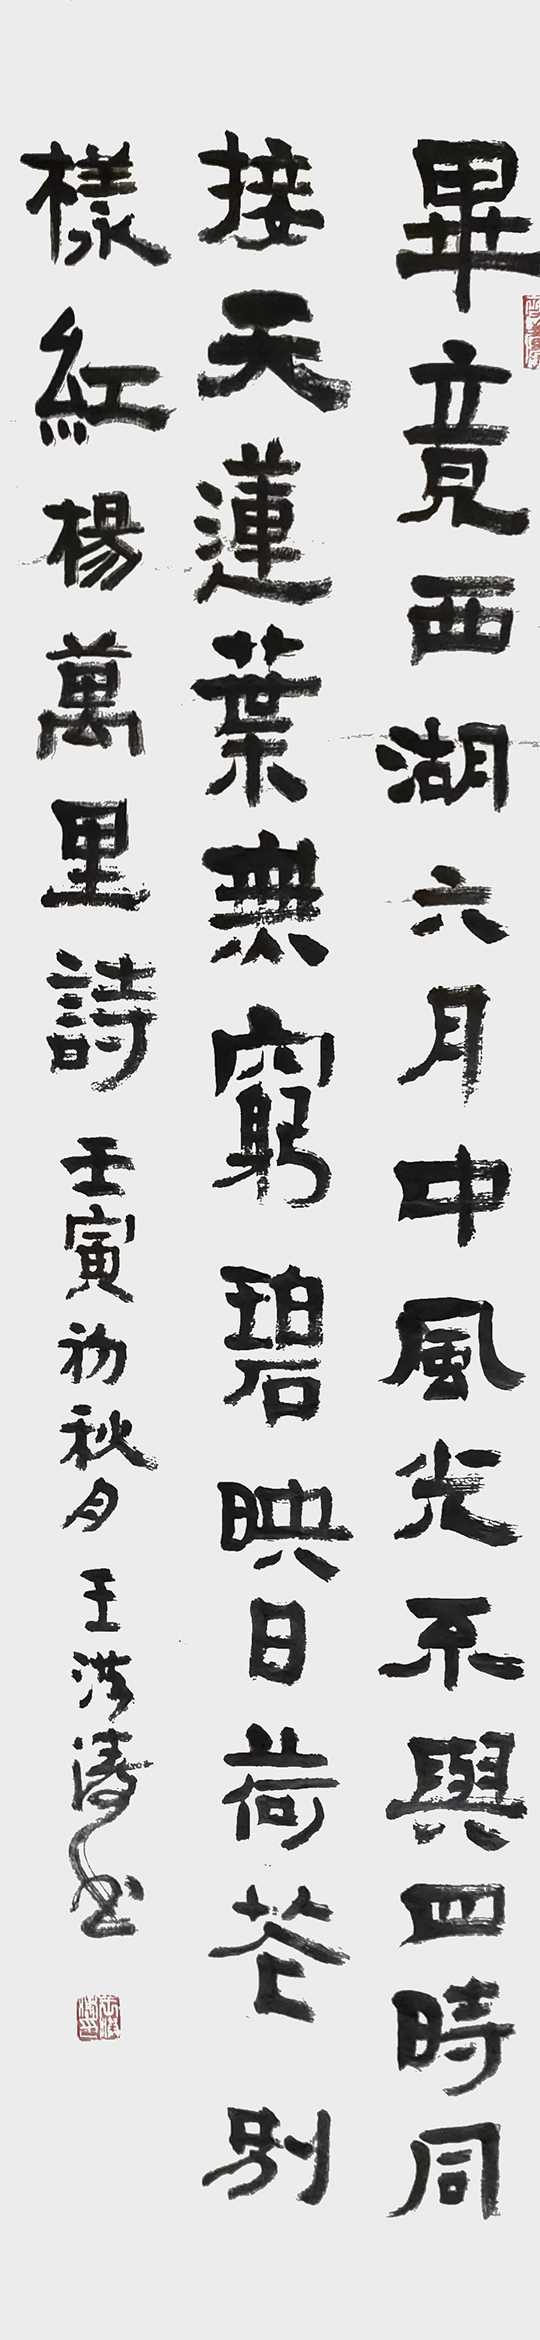 畢竟西湖六月中風光不與四時同
接天蓮葉無窮碧映日荷花別
樣紅楊萬里詩壬寅初秋月王洪濤书